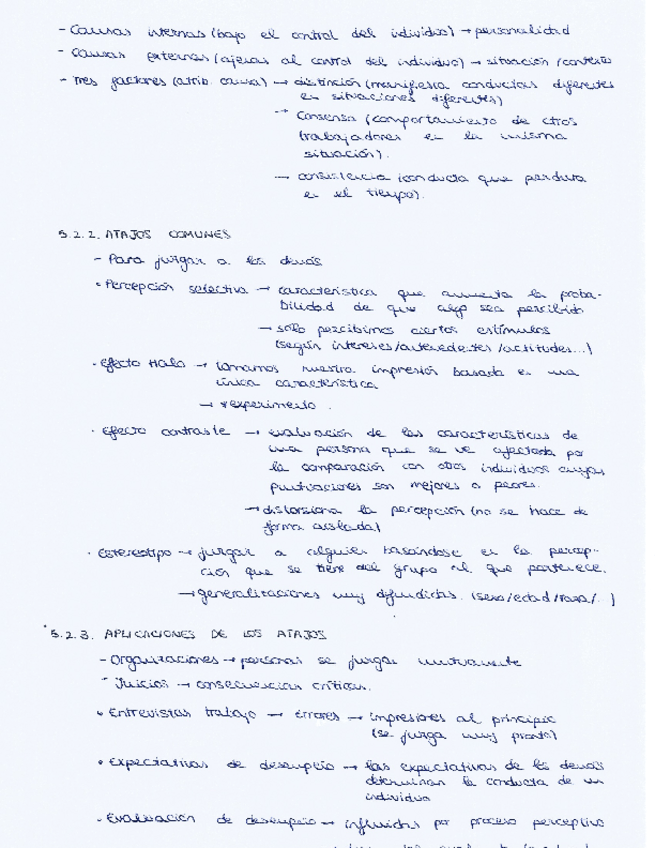 - Causas internas (bajo el control del individuo) → personalidad
- Causas externas (ajenas al control del individuo) → situación /contexto
- Tres factores (atrib. causa) → distinción (manifiesta conductas diferentes
en situaciones diferentes)
→ Consenso (comportamiento de otros
trabajadores en la misma
situación).
→ consistencia (conducta que perdura
en el tiempo).
5.2.2. ATAJOS COMUNES
- Para juzgar a los demás
• Percepción selectiva → característica que aumenta la proba-
bilidad de que algo sea percibido
→ sólo percibimos ciertos estímulos
(según intereses/antecedentes/actitudes...)
• Efecto Halo → tomamos nuestra impresión basada en una
única característica
→ *experimento.
• Efecto contraste → evaluación de las características de
una persona que se ve afectada por
la comparación con otros individuos cuyas
puntuaciones son mejores o peores.
→ distorsiona la percepción (no se hace de
forma aislada)
• Estereotipo → juzgar a alguien basándose en la percep-
ción que se tiene del grupo al que pertenece.
→ generalizaciones muy difundidas. (sexo/edad/raza/..)
5.2.3. APLICACIONES DE LOS ATAJOS
- Organizaciones → personas se juzgan mutuamente
- Juicios → consecuencias críticas.
• Entrevistas trabajo → Errores → impresiones al principio
(se juzga muy pronto)
• Expectativas de desempeño → las expectativas de los demás
determinan la conducta de un
individuo
- Evaluación de desempeño → influidas por proceso perceptivo